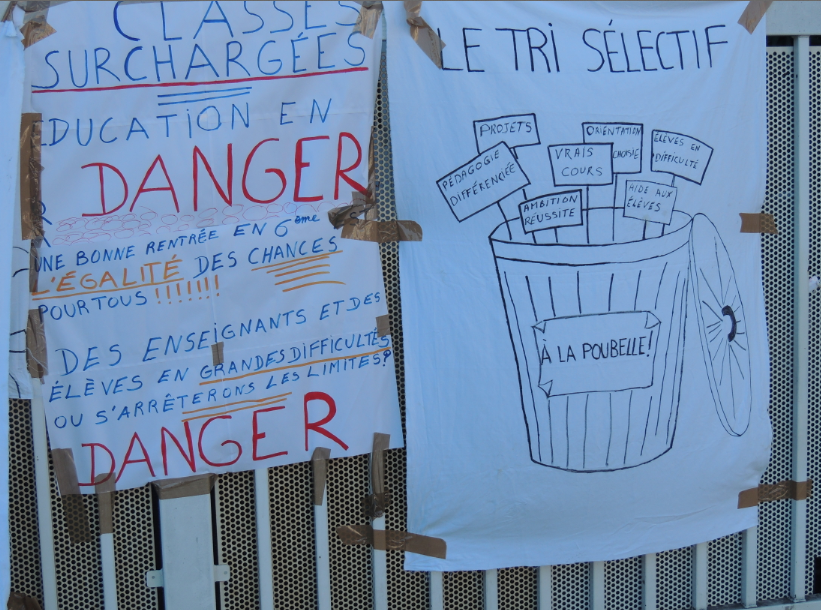 CLASSES
SURCHARGÉES
EDUCATION EN
DANGER
UNE BONNE RENTRÉE EN 6ème
L'ÉGALITÉ DES CHANCES
POUR TOUS !!!!!!!
DES ENSEIGNANTS ET DES
ÉLÈVES EN GRANDES DIFFICULTÉS
OU S'ARRÊTERONS LES LIMITES?
DANGER
LE TRI SÉLECTIF
PROJETS
PÉDAGOGIE
DIFFÉRENCIÉE
AMBITION
RÉUSSITE
VRAIS
COURS
ORIENTATION
CHOISIE
ÉLÈVES EN
DIFFICULTÉ
AIDE AUX
ÉLÈVES
À LA POUBELLE!